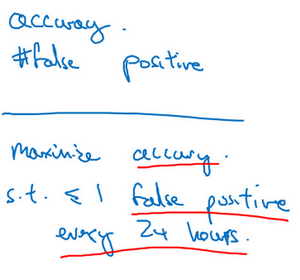 accuracy.
#false positive
Maximize accuracy.
s.t. ≤ 1 false positive
every 24 hours.